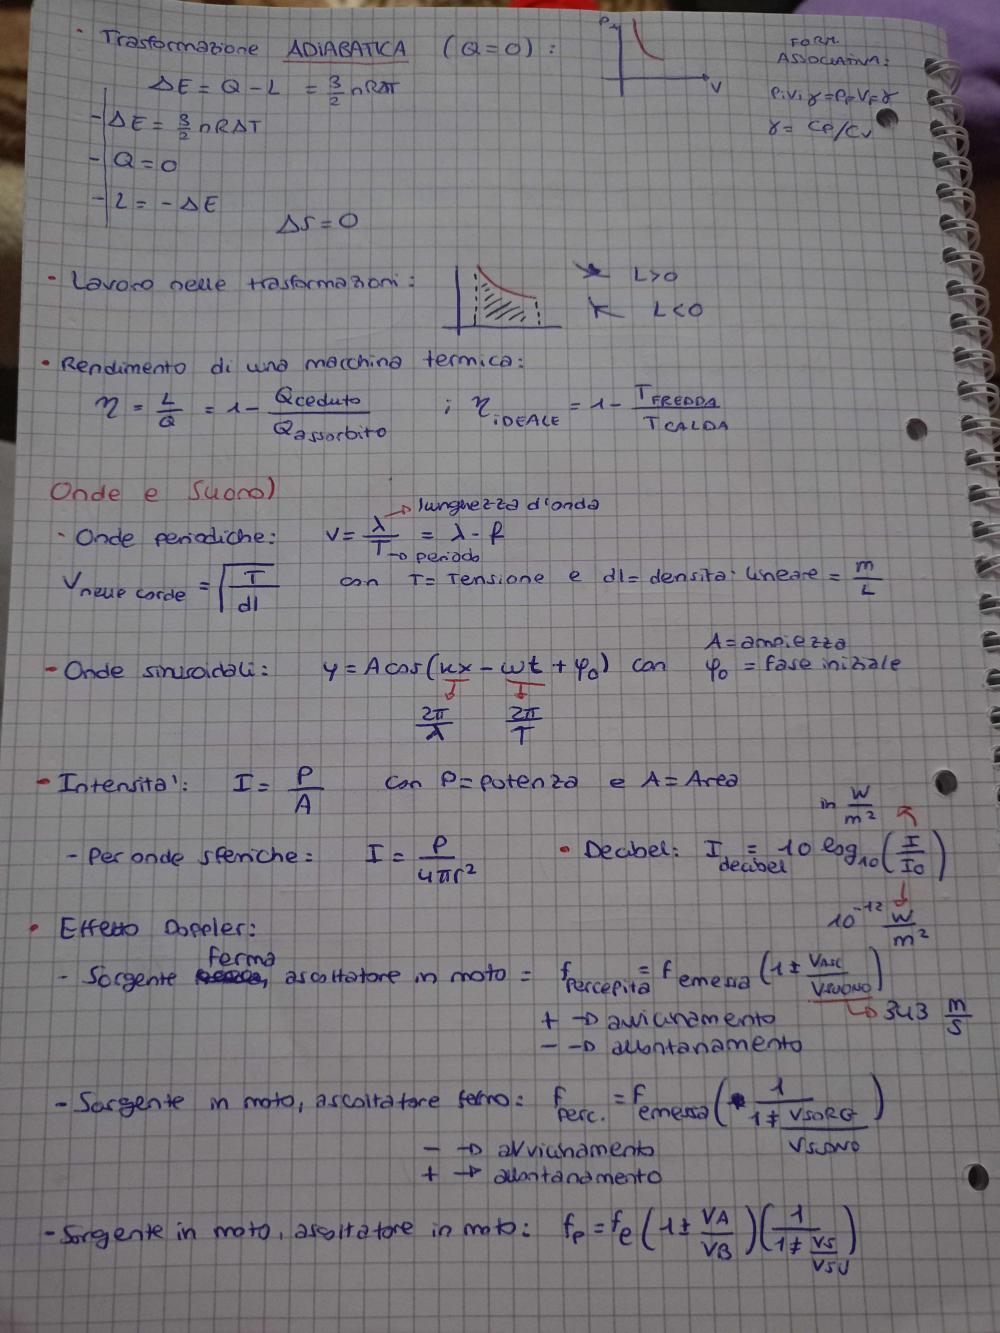 • Trasformazione ADIABATICA (Q=0):
P
V
FORM. ASSOCIATIVA:
PiViγ=PFVFγ
γ= CP/CV
ΔE = Q - L = 3/2 nRΔT
- ΔE = 3/2 nRΔT
- Q=0
- L = - ΔE
ΔS=0
• Lavoro nelle trasformazioni:
L>0
L<0
• Rendimento di una macchina termica:
η = L/Q = 1 - Qceduto/Qassorbito ; ηIDEALE = 1 - TFREDDA/TCALDA
Onde e Suono)
→ lunghezza d'onda
• Onde periodiche: V = λ/T = λ - f
→ periodo
Vnelle corde = √T/dl con T= Tensione e dl= densità lineare = m/L
A= ampiezza
- Onde sinusoidali: y = A cos(kx - ωt + φ0) con φ0 = fase iniziale
2π/λ 2π/T
• Intensita': I = P/A con P= potenza e A= Area
in W/m²
- Per onde sferiche: I = P/4πr² • Decibel: Idecibel = 10 log10(I/I0)
10⁻¹² W/m²
• Effetto Doppler:
- Sorgente ferma, ascoltatore in moto = fpercepita = femessa (1 ± VASC/VSUONO)
→ 343 m/s
+ → avvicinamento
- → allontanamento
- Sorgente in moto, ascoltatore fermo: fperc. = femessa (1/1∓VSORG/VSUONO)
- → avvicinamento
+ → allontanamento
- Sorgente in moto, ascoltatore in moto: fp = fe (1 ± VA/VB)(1/1∓VS/VSU)